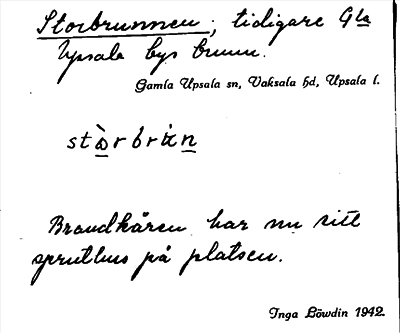 Storbrunnen; tidigare Gla
Upsala bys brunn.
Gamla Upsala sn, Vaksala hd, Upsala l.
Brandkåren har nu sitt
spruthus på platsen.
Inga Löwdin 1942.